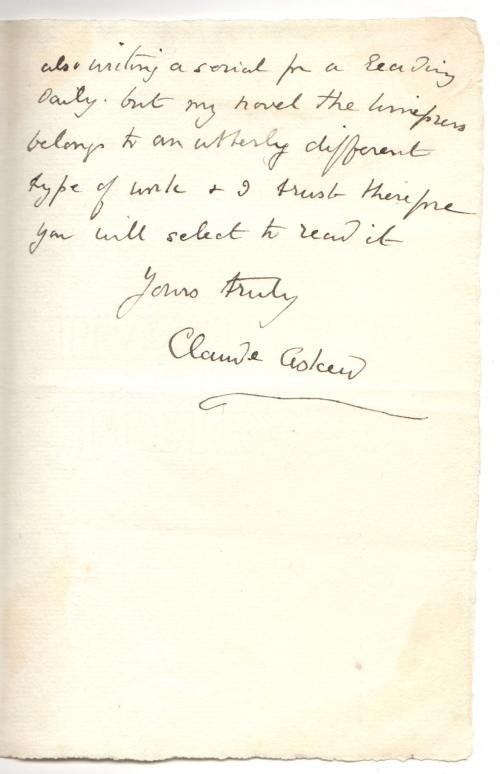 also writing a serial for a Leading
Daily. but my novel the Winepress
belongs to an utterly different
type of work & I trust therefore
you will select to read it
Yours truly
Claude Askew